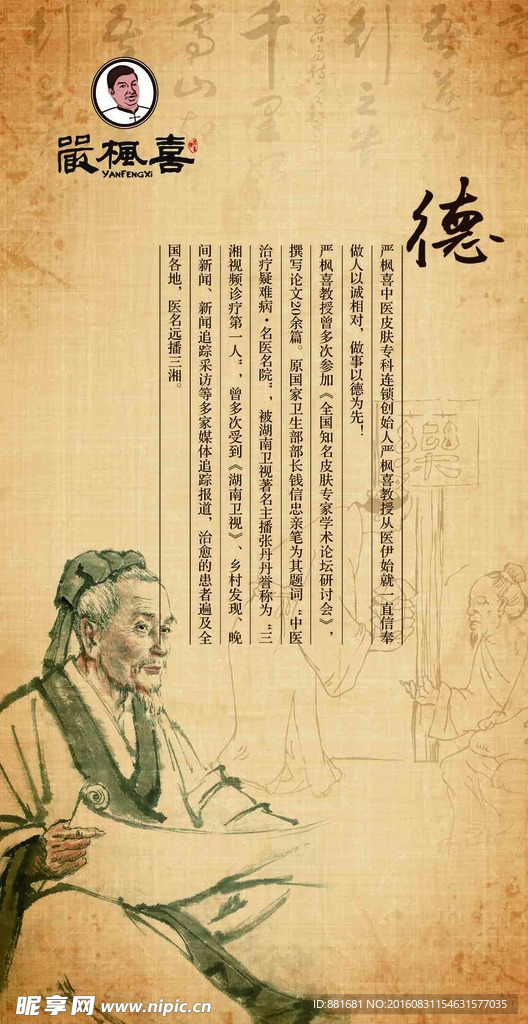 嚴楓喜
YANFENGXI
德
严枫喜中医皮肤专科连锁创始人严枫喜教授从医伊始就一直信奉
做人以诚相对，做事以德为先！
严枫喜教授曾多次参加《全国知名皮肤专家学术论坛研讨会》，
撰写论文20余篇。原国家卫生部部长钱信忠亲笔为其题词“中医
治疗疑难病·名医名院”，被湖南卫视著名主播张丹丹誉称为“三
湘视频诊疗第一人”，曾多次受到《湖南卫视》、乡村发现、晚
间新闻、新闻追踪采访等多家媒体追踪报道，治愈的患者遍及全
国各地，医名远播三湘。
昵享网 www.nipic.cn
ID:881681 NO:20160831154631577035